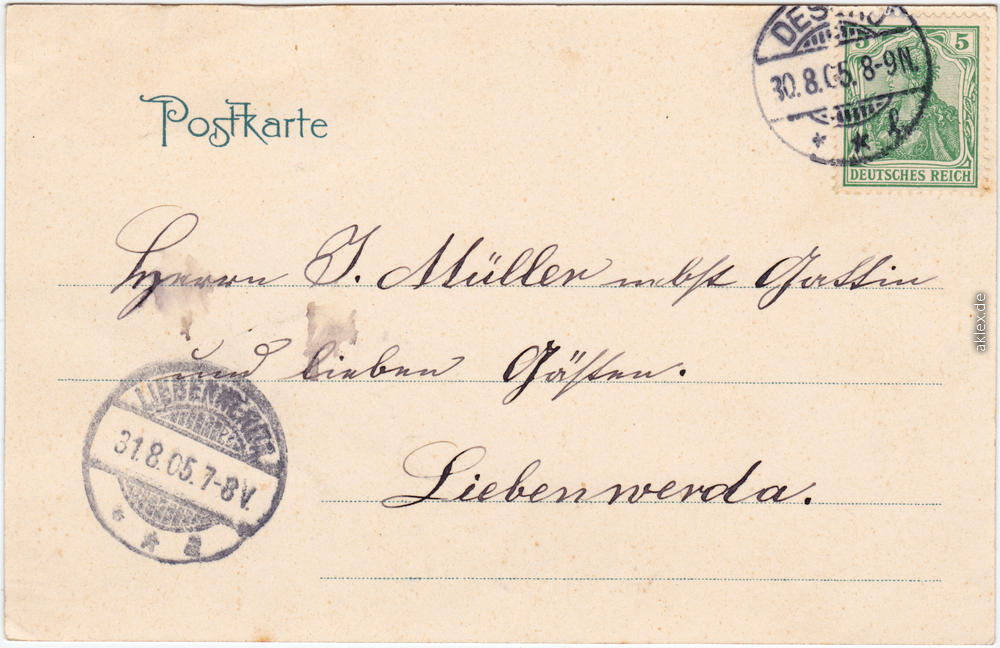 DESSAU
30.8.05. 8-9N.
5 5
DEUTSCHES REICH
Postkarte
Herrn J. Müller nebst Gattin
und lieben Gästen.
Liebenwerda.
LIEBENWERDA
31.8.05. 7-8V.
* a
aklex.de